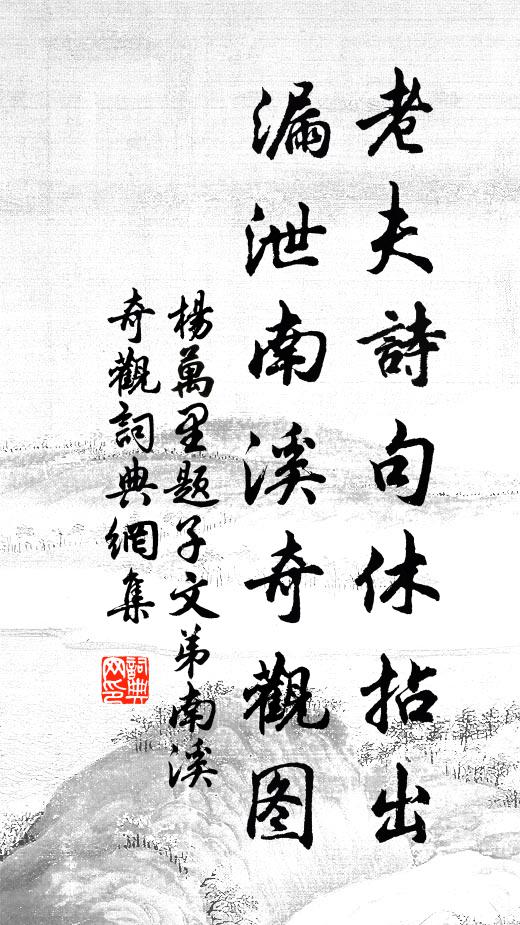 老夫詩句休拈出
漏泄南溪奇觀图
楊萬里題子文弟南溪
奇觀詞典網集
詞典网印